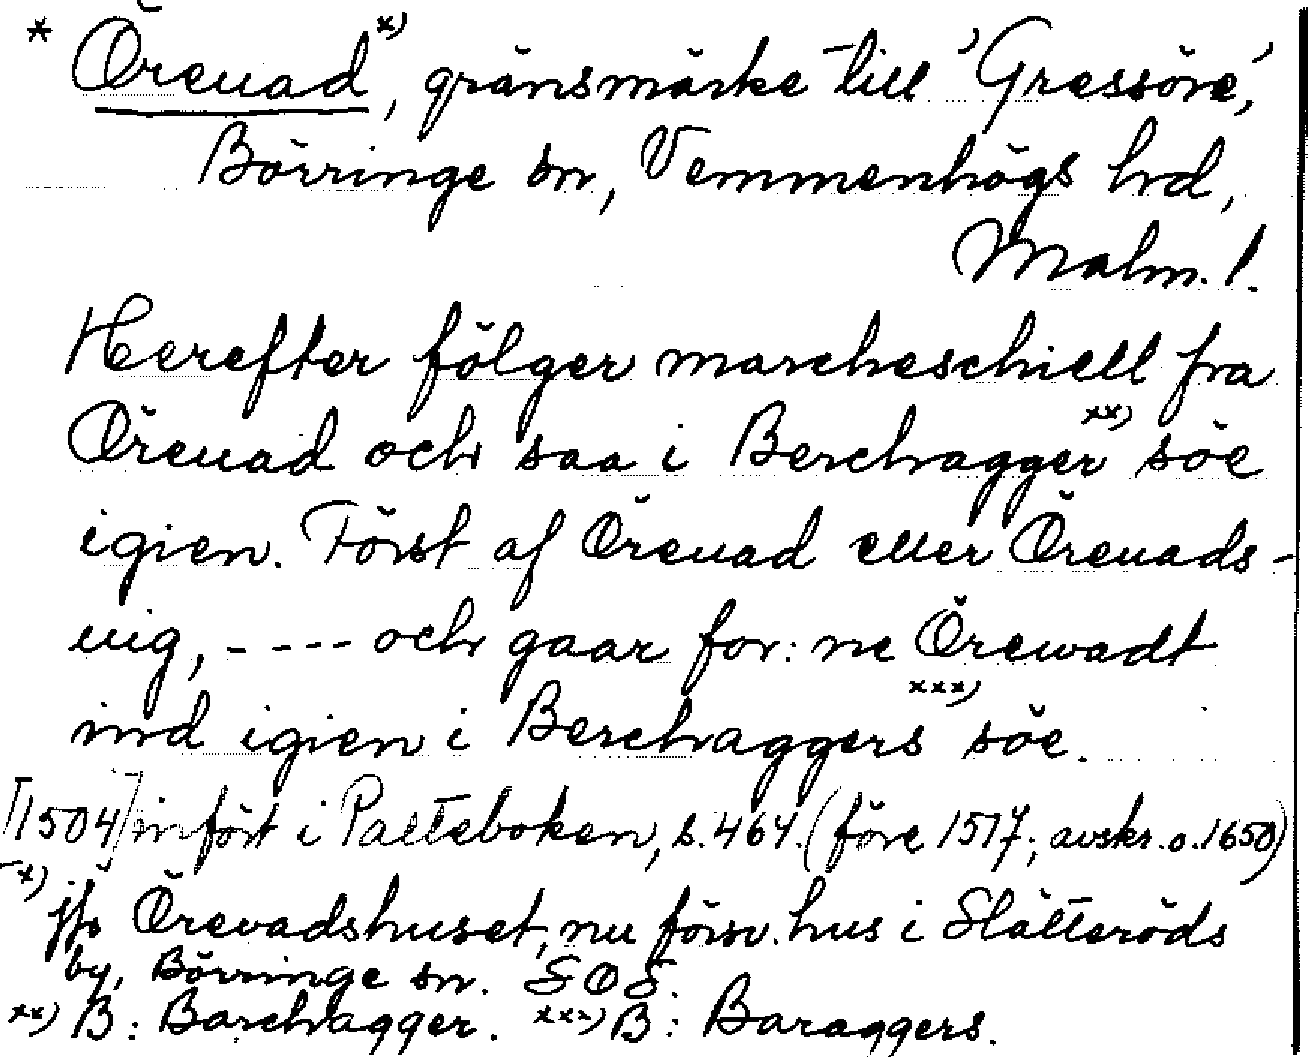 * Öreuad x), gränsmärke till 'Gressöre',
Börringe sn, Vemmenhögs hd,
Malm. l.
Herefter fölger marcheschiell fra
Öreuad och saa i Berchagger xx) söe
igien. Först af Öreuad eller Öreuads-
uig, ---- och gaar for: ne Örewadt
ind igien i Berchaggers xxx) söe.
[1504] infört i Palteboken, s. 464. (före 1517; avskr. o. 1650)
x) jfr Örevadshuset, nu försv. hus i Slätteröds
by, Börringe sn. SOS.
xx) B: Barchagger. xxx) B: Baraggers.